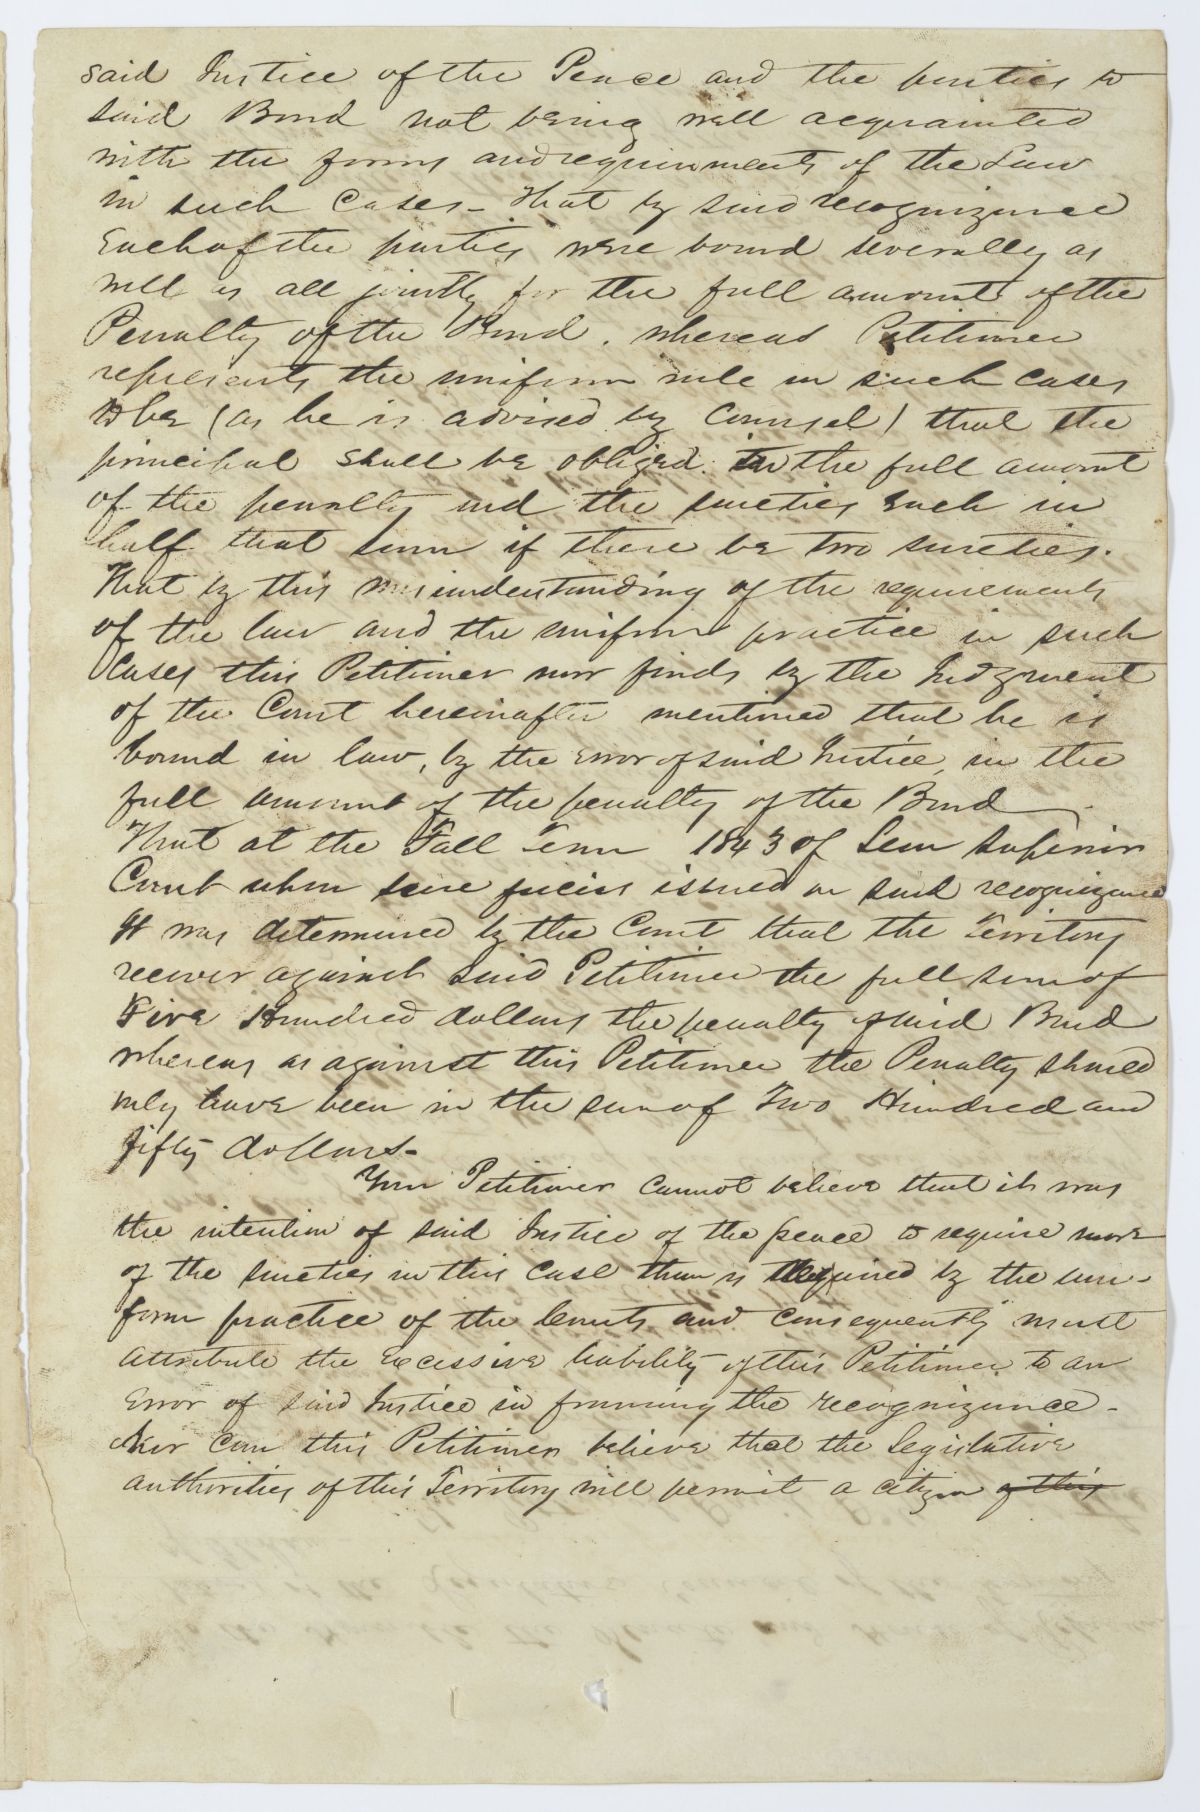 said Justice of the Peace and the parties to
said Bond not being well acquainted
with the forms and requirements of the Law
in such Cases – That by said recognizance
Each of the parties were bound severally as
well as all jointly for the full amount of the
Penalty of the Bond. whereas Petitioner
represents the uniform rule in such cases
to be (as he is advised by Counsel) that the
principal shall be obliged in the full amount
of the penalty and the sureties each in
half that sum if there be two sureties.
That by this misunderstanding of the requirements
of the law and the uniform practice in such
Cases this Petitioner now finds by the Judgment
of the Court hereinafter mentioned that he is
bound in law, by the Error of said Justice, in the
full amount of the penalty of the Bond
That at the Fall Term 1843 of Leon Superior
Court when scire facias issued on said recognizance
It was determined by the Court that the Territory
recover against said Petitioner the full sum of
Five Hundred dollars the penalty of said Bond
whereas as against this Petitioner the Penalty should
only have been in the sum of Two Hundred and
fifty dollars –
Your Petitioner cannot believe that it was
the intention of said Justice of the peace to require more
of the sureties in this Case than is required by the uni-
form practice of the Courts and consequently must
attribute the Excessive liability of this Petitioner to an
Error of said Justice in framing the recognizance –
Nor can this Petitioner believe that the legislative
authorities of this Territory will permit a citizen of this